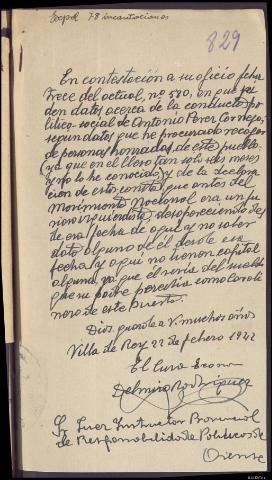 Exped 78 incautaciones
829
En contestación a su oficio fecha
trece del actual, nº 580, en que pi
den datos acerca de la conducta po
litico-social de Antonio Perez Cornejo,
segun datos que he procurado recoger
de personas honradas de este pueblo
(ya que en el llevo tan solo seis meses
y no lo he conocido) y de la declara
ción de estos, consta que antes del
Movimiento Nacional era un fu
rioso izquierdista, desapareciendo des
de esa fecha de aqui y no saber
dato alguno de el desde esa
fecha y aqui no tienen capital
alguno, ya que el servia del sueldo
que su padre percibia como Carabi
nero de este puesto.
Dios guarde a V. muchos años
Villa de Rey 22 de febrero 1942
El Cura Economo
Delmiro Rodriguez
Sr Juez Instructor Provincial
de Responsabilidades Politicas de
Orense